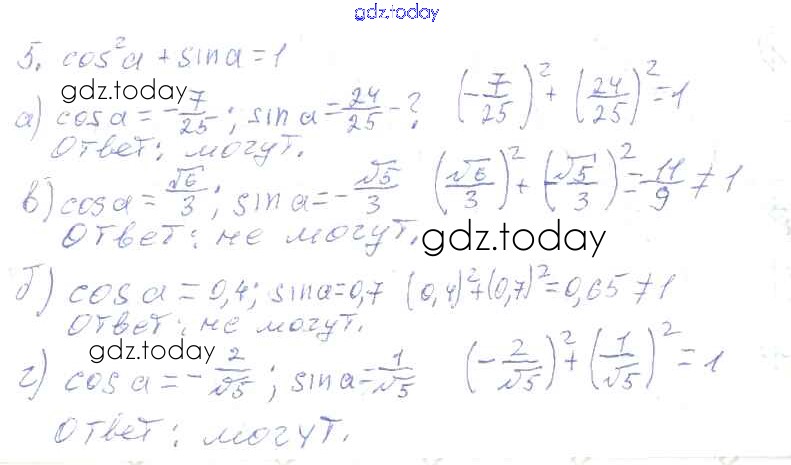 gdz.today
5. cos²a + sin a = 1
gdz.today
а) cos a = -7/25 ; sin a = 24/25 - ? (-7/25)² + (24/25)² = 1
Ответ: могут.
в) cos a = √6/3 ; sin a = -√5/3 (√6/3)² + (-√5/3)² = 11/9 ≠ 1
Ответ: не могут.
gdz.today
б) cos a = 0,4; sin a = 0,7 (0,4)² + (0,7)² = 0,65 ≠ 1
Ответ: не могут.
gdz.today
г) cos a = -2/√5 ; sin a = 1/√5 (-2/√5)² + (1/√5)² = 1
Ответ: могут.